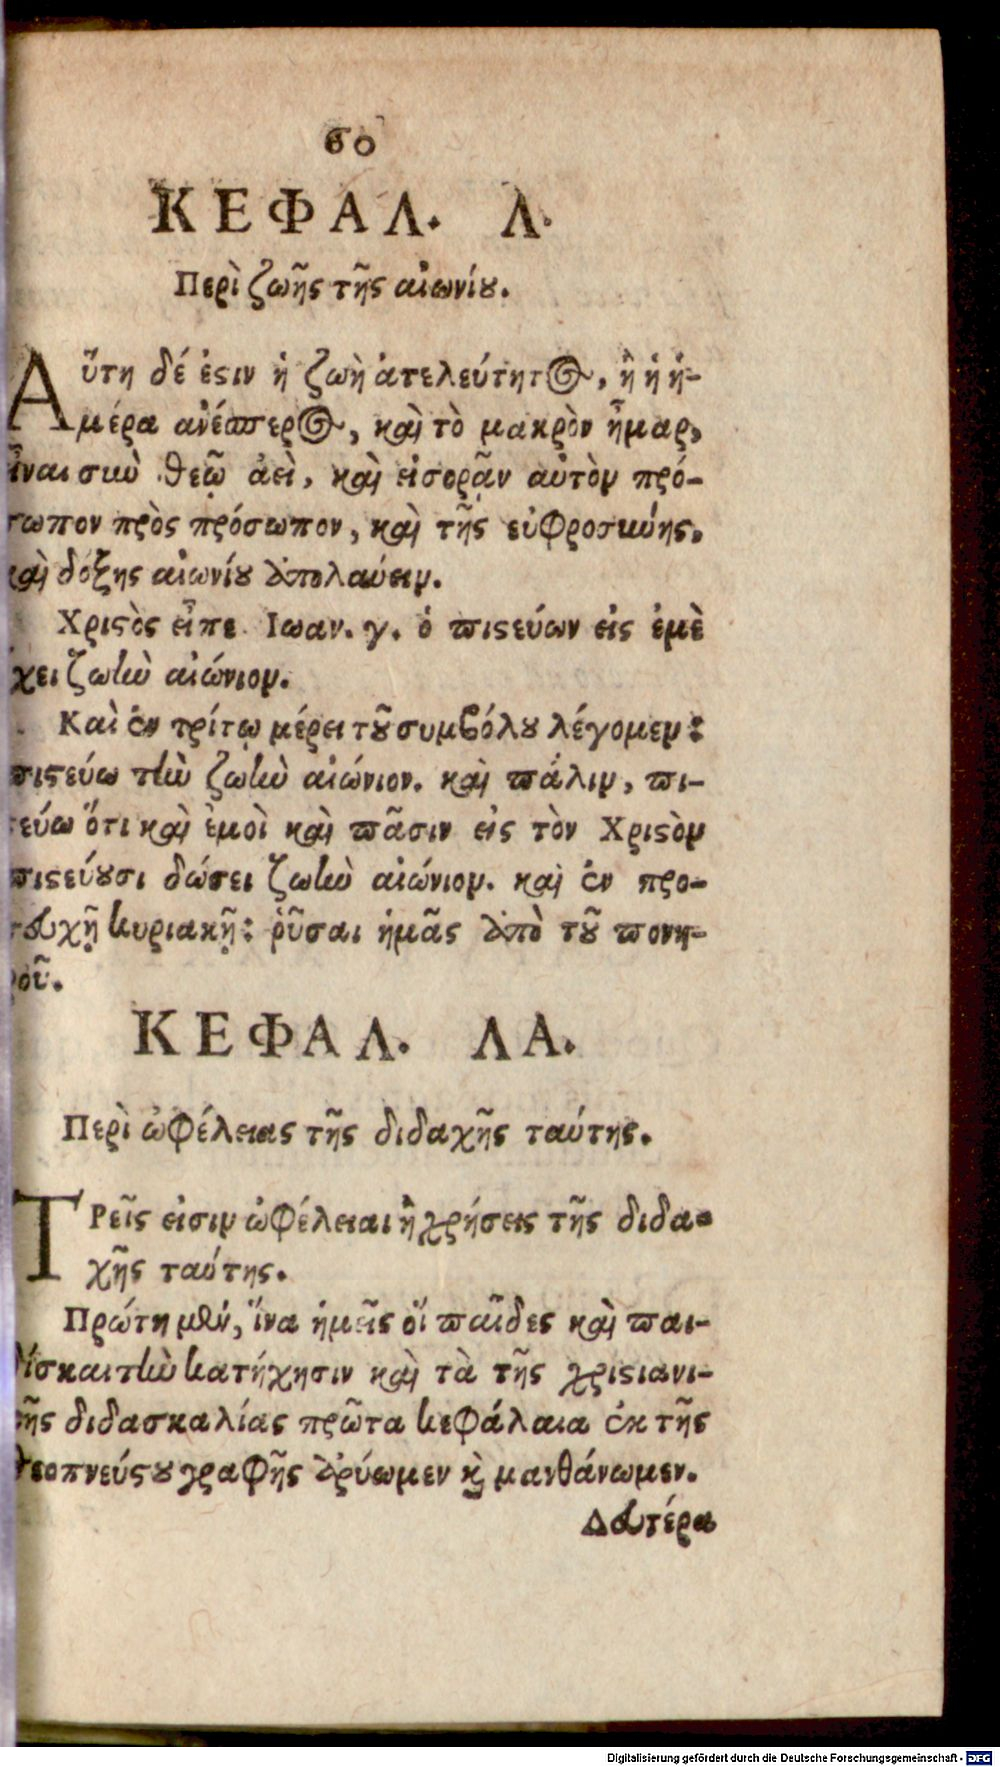 σο
ΚΕΦΑΛ. Λ.
Περὶ ζωῆς τῆς αἰωνίου.
Αὕτη δέ ἐστιν ἡ ζωὴ ἀτελεύτητος, ἢ ἡ ἡ-
μέρα ἀνέσπερος, καὶ τὸ μακρὸν ἦμαρ,
εἶναι σὺν θεῷ ἀεὶ, καὶ εἰσορᾷν αὐτὸν πρό-
σωπον πρὸς πρόσωπον, καὶ τῆς εὐφροσύνης,
καὶ δόξης αἰωνίου ἀπολαύειν.
Χριστὸς εἶπε Ιωαν. γ. ὁ πιστεύων εἰς ἐμὲ
ἔχει ζωὴν αἰώνιον.
Καὶ ἐν τρίτῳ μέρει τοῦ συμβόλου λέγομεν:
πιστεύω τὴν ζωὴν αἰώνιον. καὶ πάλιν, πι-
στεύω ὅτι καὶ ἐμοὶ καὶ πᾶσιν εἰς τὸν Χριστὸν
πιστεύουσι δώσει ζωὴν αἰώνιον. καὶ ἐν προ-
σευχῇ κυριακῇ: ῥῦσαι ἡμᾶς ἀπὸ τοῦ πονη-
ροῦ.
ΚΕΦΑΛ. ΛΑ.
Περὶ ὠφέλειας τῆς διδαχῆς ταύτης.
ΤΡεῖς εἰσιν ὠφέλειαι ἢ χρήσεις τῆς διδα-
χῆς ταύτης.
Πρώτη μὲν, ἵνα ἡμεῖς οἵ παῖδες καὶ παι-
δίσκαι τὴν κατήχησιν καὶ τὰ τῆς χριστιανι-
κῆς διδασκαλίας πρῶτα κεφάλαια ἐκ τῆς
θεοπνεύστου γραφῆς ἀρύωμεν καὶ μανθάνωμεν.
Δευτέρα
Digitalisierung gefördert durch die Deutsche Forschungsgemeinschaft - DFG